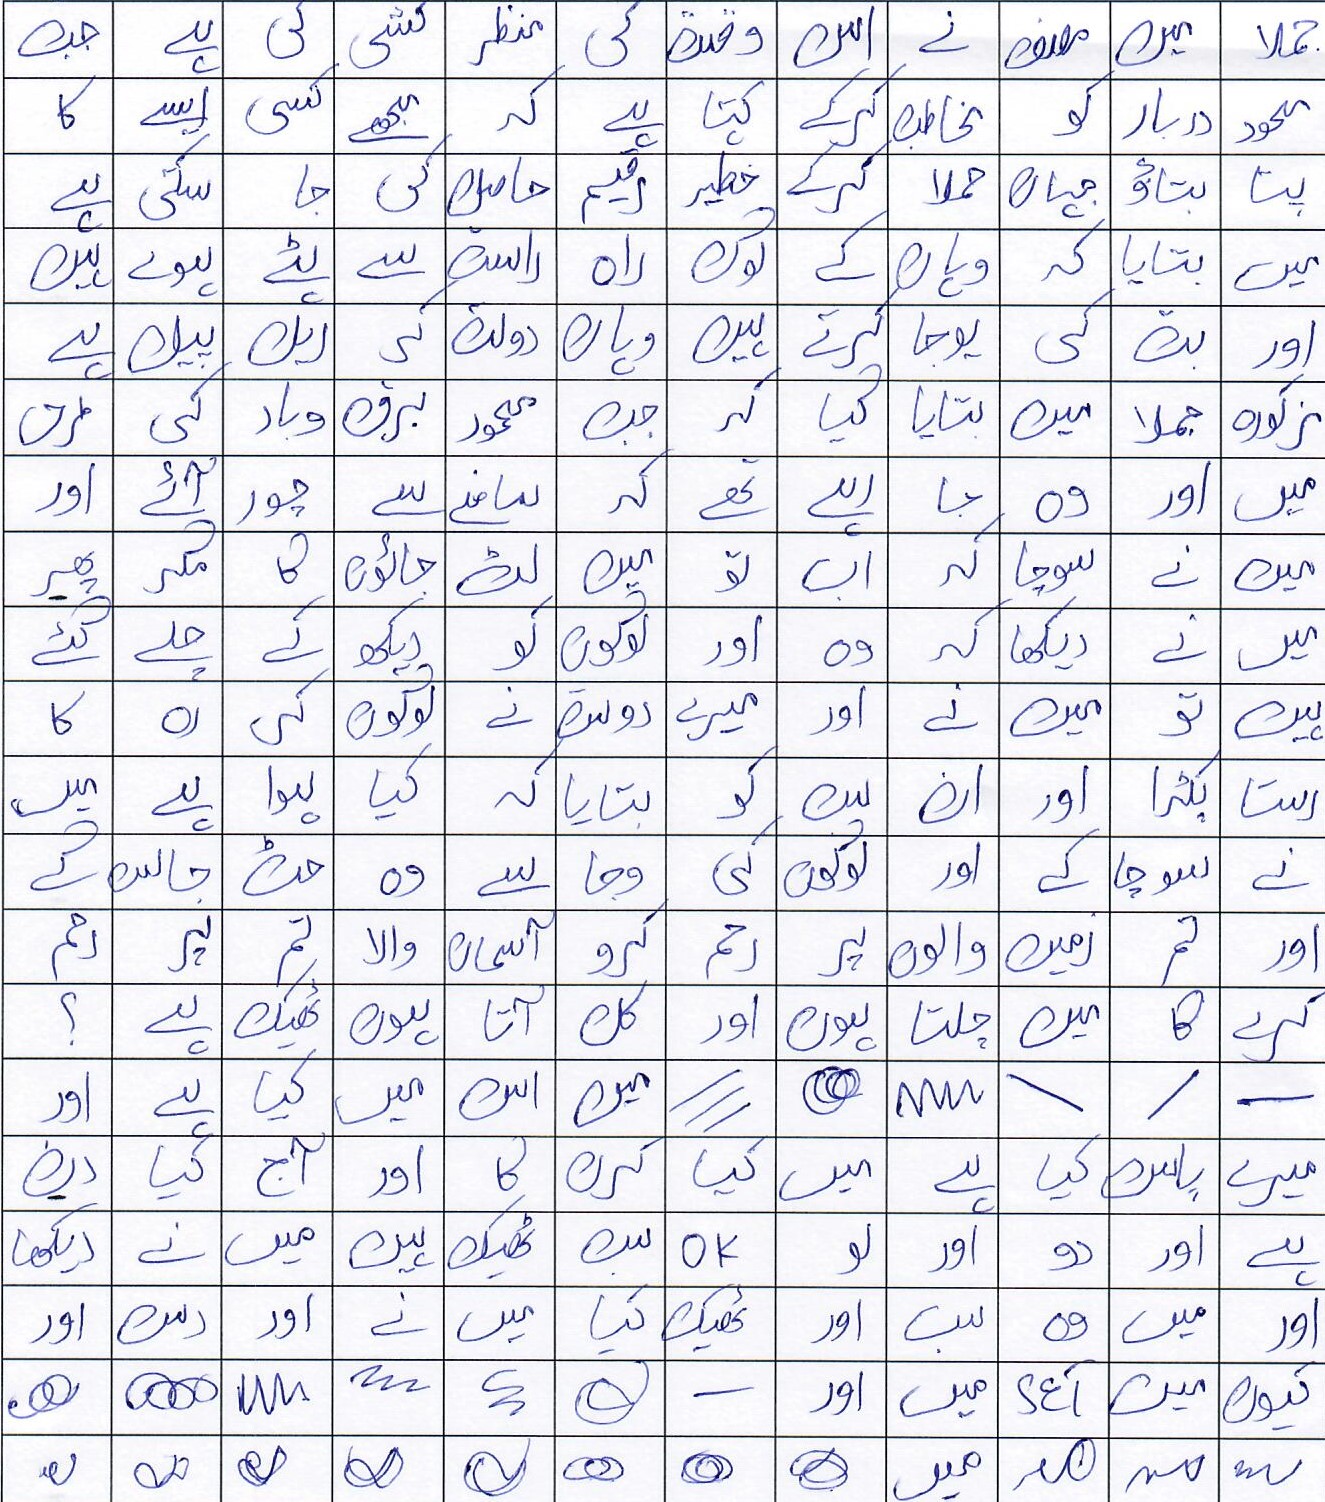 جملا میں مصنف نے اس وقت کی منظر کشی کی ہے جب
محمود دربار کو مخاطب کرکے کہتا ہے کہ مجھے کسی ایسے کا
پتا بتاؤ جہاں حملا کرکے خطیر رقیم حاصل کی جا سکتی ہے
میں بتایا کہ وہاں کے لوگ راہ راست سے ہٹے ہوے ہیں
اور بت کی پوجا کرتے ہیں وہاں دولت کی ریل پیل ہے
مزکورہ جملا میں بتایا گیا کہ جب محمود برق وباد کی طرح
میں اور وہ جا رہے تھے کہ سامنے سے چور آئے اور
میں نے سوچا کہ اب تو میں لٹ جائوں گا مگر پھیر
میں نے دیکھا کہ وہ اور لوگوں کو دیکھ کے چلے گئے
ہیں تو میں نے اور میرے دوست نے لوگوں کی رہ کا
رستا پکڑا اور ان سب کو بتایا کہ کیا ہوا ہے میں
نے سوچا کے اور لوگوں کی وجا سے وہ ہٹ جاس گے
اور تم زمین والوں پر رحم کرو آسمان والا تم پر رحم
کرے گا میں چلتا ہوں اور کل آتا ہوں ٹھیک ہے ؟
میں اس میں کیا ہے اور
میرے پاس کیا ہے میں کیا کرں گا اور آج کیا دن
ہے اور دو اور لو OK سب ٹھیک ہیں میں نے دیکھا
اور میں وہ سب اور ٹھیک کیا میں نے اور دس اور
کیوں میں میں اور
میں